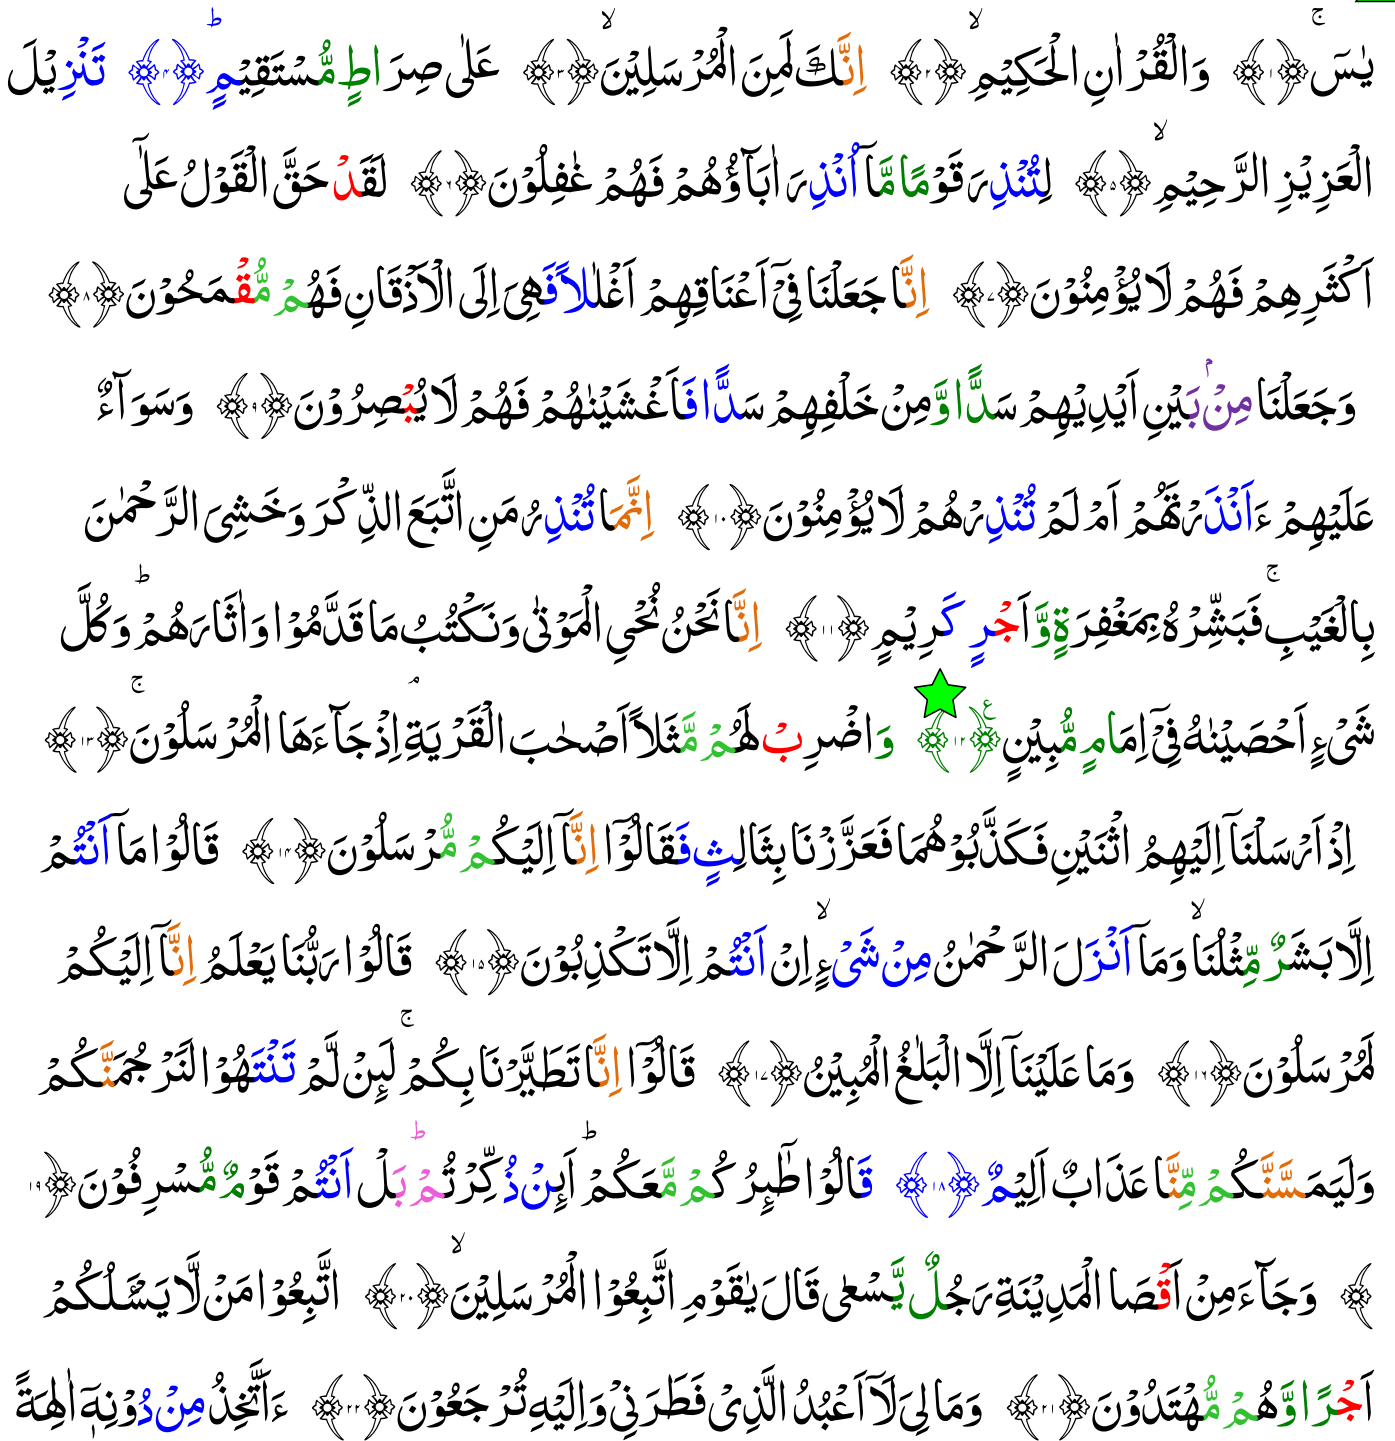 يٰسٓ ۚ﴿۱﴾ وَالْقُرْاٰنِ الْحَكِيْمِ ۙ﴿۲﴾ اِنَّكَ لَمِنَ الْمُرْسَلِيْنَ ۙ﴿۳﴾ عَلٰى صِرَاطٍ مُّسْتَقِيْمٍ ؕ﴿۴﴾ تَنْزِيْلَ
الْعَزِيْزِ الرَّحِيْمِ ۙ﴿۵﴾ لِتُنْذِرَ قَوْمًا مَّاۤ اُنْذِرَ اٰبَآؤُهُمْ فَهُمْ غٰفِلُوْنَ ﴿۶﴾ لَقَدْ حَقَّ الْقَوْلُ عَلٰٓى
اَكْثَرِهِمْ فَهُمْ لَا يُؤْمِنُوْنَ ﴿۷﴾ اِنَّا جَعَلْنَا فِىْۤ اَعْنَاقِهِمْ اَغْلٰلًا فَهِىَ اِلَى الْاَذْقَانِ فَهُمْ مُّقْمَحُوْنَ ﴿۸﴾
وَجَعَلْنَا مِنْۢ بَيْنِ اَيْدِيْهِمْ سَدًّا وَّمِنْ خَلْفِهِمْ سَدًّا فَاَغْشَيْنٰهُمْ فَهُمْ لَا يُبْصِرُوْنَ ﴿۹﴾ وَسَوَآءٌ
عَلَيْهِمْ ءَاَنْذَرْتَهُمْ اَمْ لَمْ تُنْذِرْهُمْ لَا يُؤْمِنُوْنَ ﴿۱۰﴾ اِنَّمَا تُنْذِرُ مَنِ اتَّبَعَ الذِّكْرَ وَخَشِىَ الرَّحْمٰنَ
بِالْغَيْبِ ۚ فَبَشِّرْهُ بِمَغْفِرَةٍ وَّاَجْرٍ كَرِيْمٍ ﴿۱۱﴾ اِنَّا نَحْنُ نُحْىِ الْمَوْتٰى وَنَكْتُبُ مَا قَدَّمُوْا وَاٰثَارَهُمْ ؕ وَكُلَّ
شَىْءٍ اَحْصَيْنٰهُ فِىْۤ اِمَامٍ مُّبِيْنٍ ﴿۱۲﴾ ع وَاضْرِبْ لَهُمْ مَّثَلًا اَصْحٰبَ الْقَرْيَةِ ۘ اِذْ جَآءَهَا الْمُرْسَلُوْنَ ۚ﴿۱۳﴾
اِذْ اَرْسَلْنَاۤ اِلَيْهِمُ اثْنَيْنِ فَكَذَّبُوْهُمَا فَعَزَّزْنَا بِثَالِثٍ فَقَالُوْۤا اِنَّاۤ اِلَيْكُمْ مُّرْسَلُوْنَ ﴿۱۴﴾ قَالُوْا مَاۤ اَنْتُمْ
اِلَّا بَشَرٌ مِّثْلُنَا ۙ وَمَاۤ اَنْزَلَ الرَّحْمٰنُ مِنْ شَىْءٍ ۙ اِنْ اَنْتُمْ اِلَّا تَكْذِبُوْنَ ﴿۱۵﴾ قَالُوْا رَبُّنَا يَعْلَمُ اِنَّاۤ اِلَيْكُمْ
لَمُرْسَلُوْنَ ﴿۱۶﴾ وَمَا عَلَيْنَاۤ اِلَّا الْبَلٰغُ الْمُبِيْنُ ﴿۱۷﴾ قَالُوْۤا اِنَّا تَطَيَّرْنَا بِكُمْ ۚ لَئِنْ لَّمْ تَنْتَهُوْا لَنَرْجُمَنَّكُمْ
وَلَيَمَسَّنَّكُمْ مِّنَّا عَذَابٌ اَلِيْمٌ ﴿۱۸﴾ قَالُوْا طٰٓئِرُكُمْ مَّعَكُمْ ؕ اَئِنْ ذُكِّرْتُمْ ؕ بَلْ اَنْتُمْ قَوْمٌ مُّسْرِفُوْنَ ﴿۱۹
﴾ وَجَآءَ مِنْ اَقْصَا الْمَدِيْنَةِ رَجُلٌ يَّسْعٰى قَالَ يٰقَوْمِ اتَّبِعُوا الْمُرْسَلِيْنَ ۙ﴿۲۰﴾ اتَّبِعُوْا مَنْ لَّا يَسْـَٔلُكُمْ
اَجْرًا وَّهُمْ مُّهْتَدُوْنَ ﴿۲۱﴾ وَمَا لِىَ لَاۤ اَعْبُدُ الَّذِىْ فَطَرَنِىْ وَاِلَيْهِ تُرْجَعُوْنَ ﴿۲۲﴾ ءَاَتَّخِذُ مِنْ دُوْنِهٖۤ اٰلِهَةً